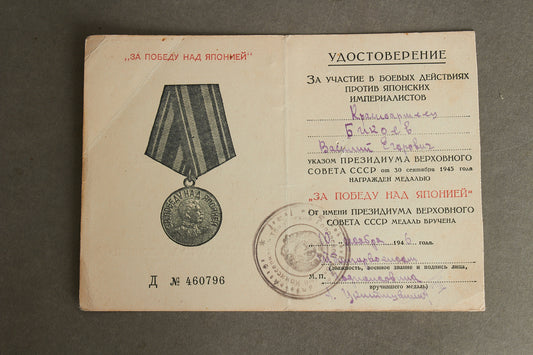 „ЗА ПОБЕДУ НАД ЯПОНИЕЙ“
Д № 460796
УДОСТОВЕРЕНИЕ
ЗА УЧАСТИЕ В БОЕВЫХ ДЕЙСТВИЯХ
ПРОТИВ ЯПОНСКИХ
ИМПЕРИАЛИСТОВ
Красноармеец
Василий Егорович
УКАЗОМ ПРЕЗИДИУМА ВЕРХОВНОГО
СОВЕТА СССР от 30 сентября 1945 года
НАГРАЖДЕН МЕДАЛЬЮ
„ЗА ПОБЕДУ НАД ЯПОНИЕЙ“
ОТ ИМЕНИ ПРЕЗИДИУМА ВЕРХОВНОГО
СОВЕТА СССР МЕДАЛЬ ВРУЧЕНА
ноября 1946 года.
(должность, военное звание и подпись лица,
М. П.
вручившего медаль)